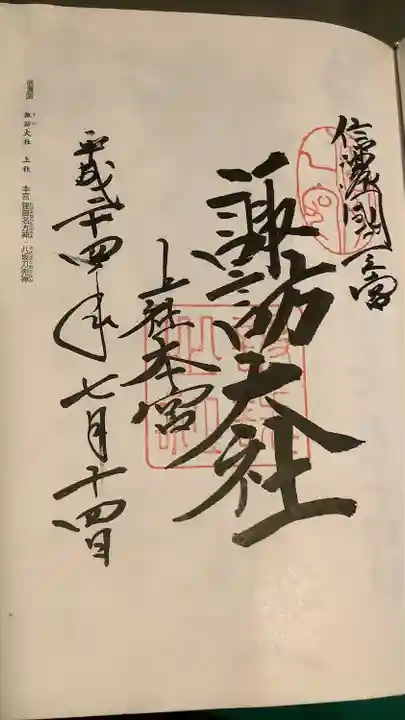 信濃國一之宮
諏訪大社
上社本宮
平成二十四年七月十四日
信濃国 諏訪大社 上社 本宮 建御名方神 八坂刀売神